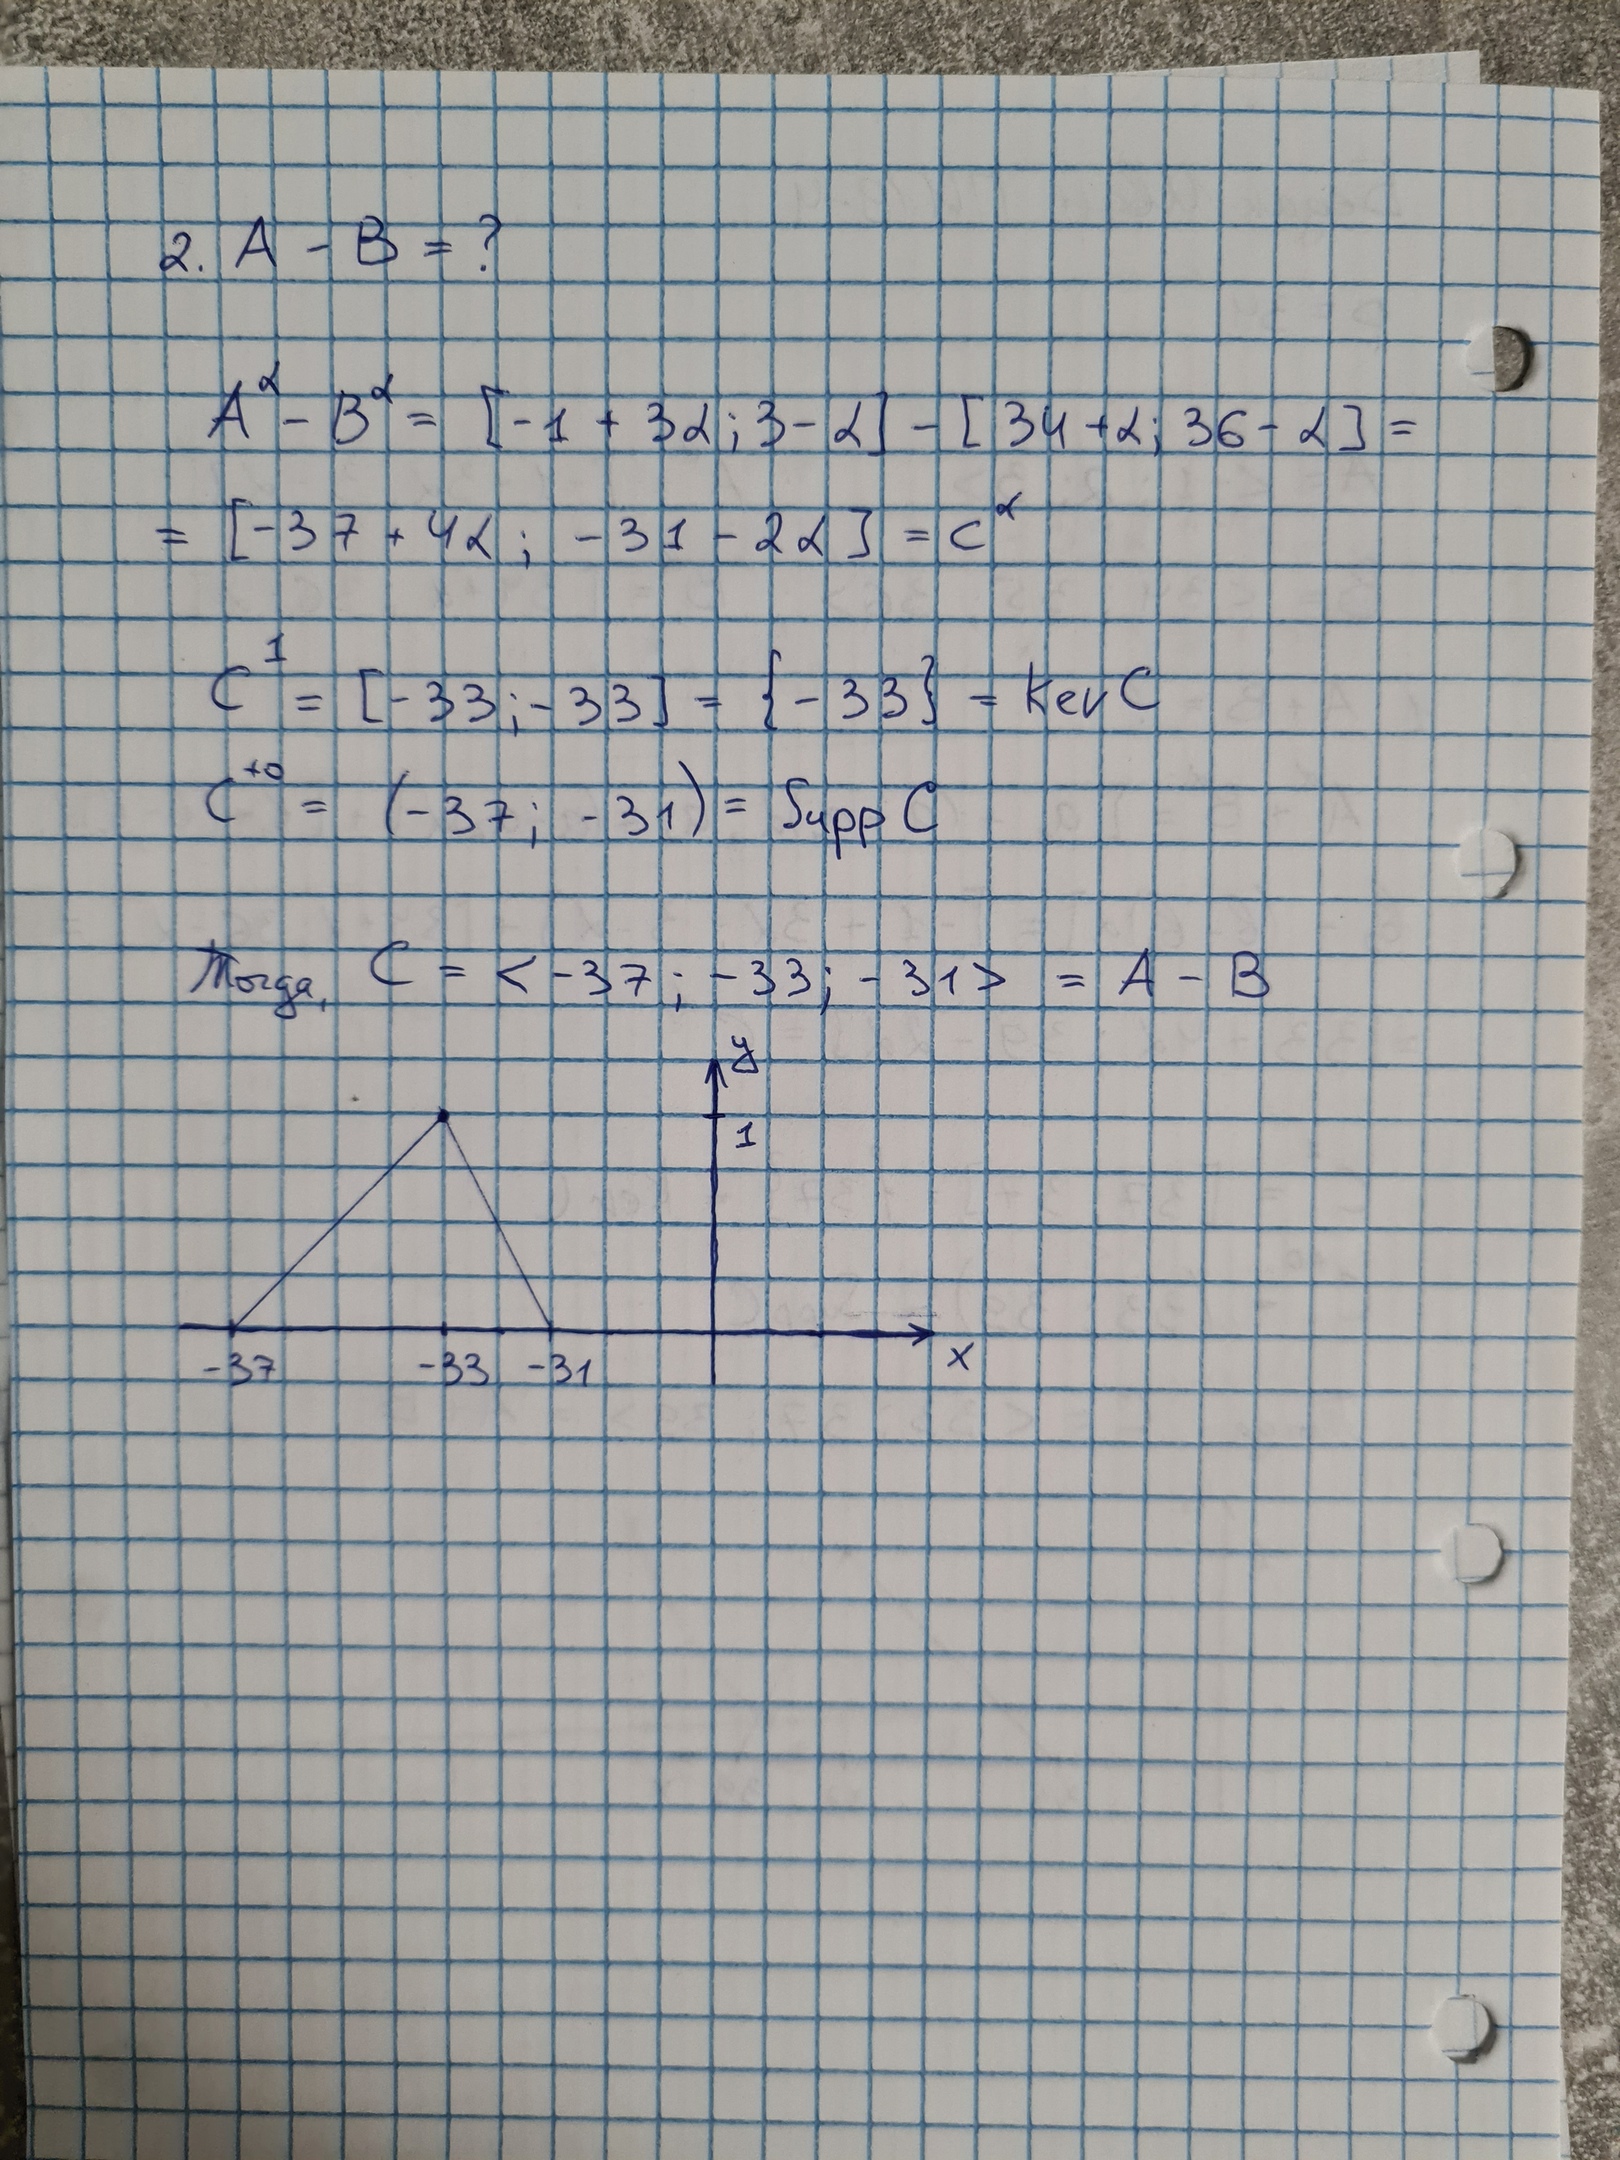 2. A - B = ?
A^α - B^α = [-1 + 3α; 3 - α] - [34 + α; 36 - α] =
= [-37 + 4α; -31 - 2α] = C^α
C^1 = [-33; -33] = {-33} = Ker C
C^+0 = (-37; -31) = Supp C
Тогда, C = <-37; -33; -31> = A - B
y
1
-37 -33 -31 x